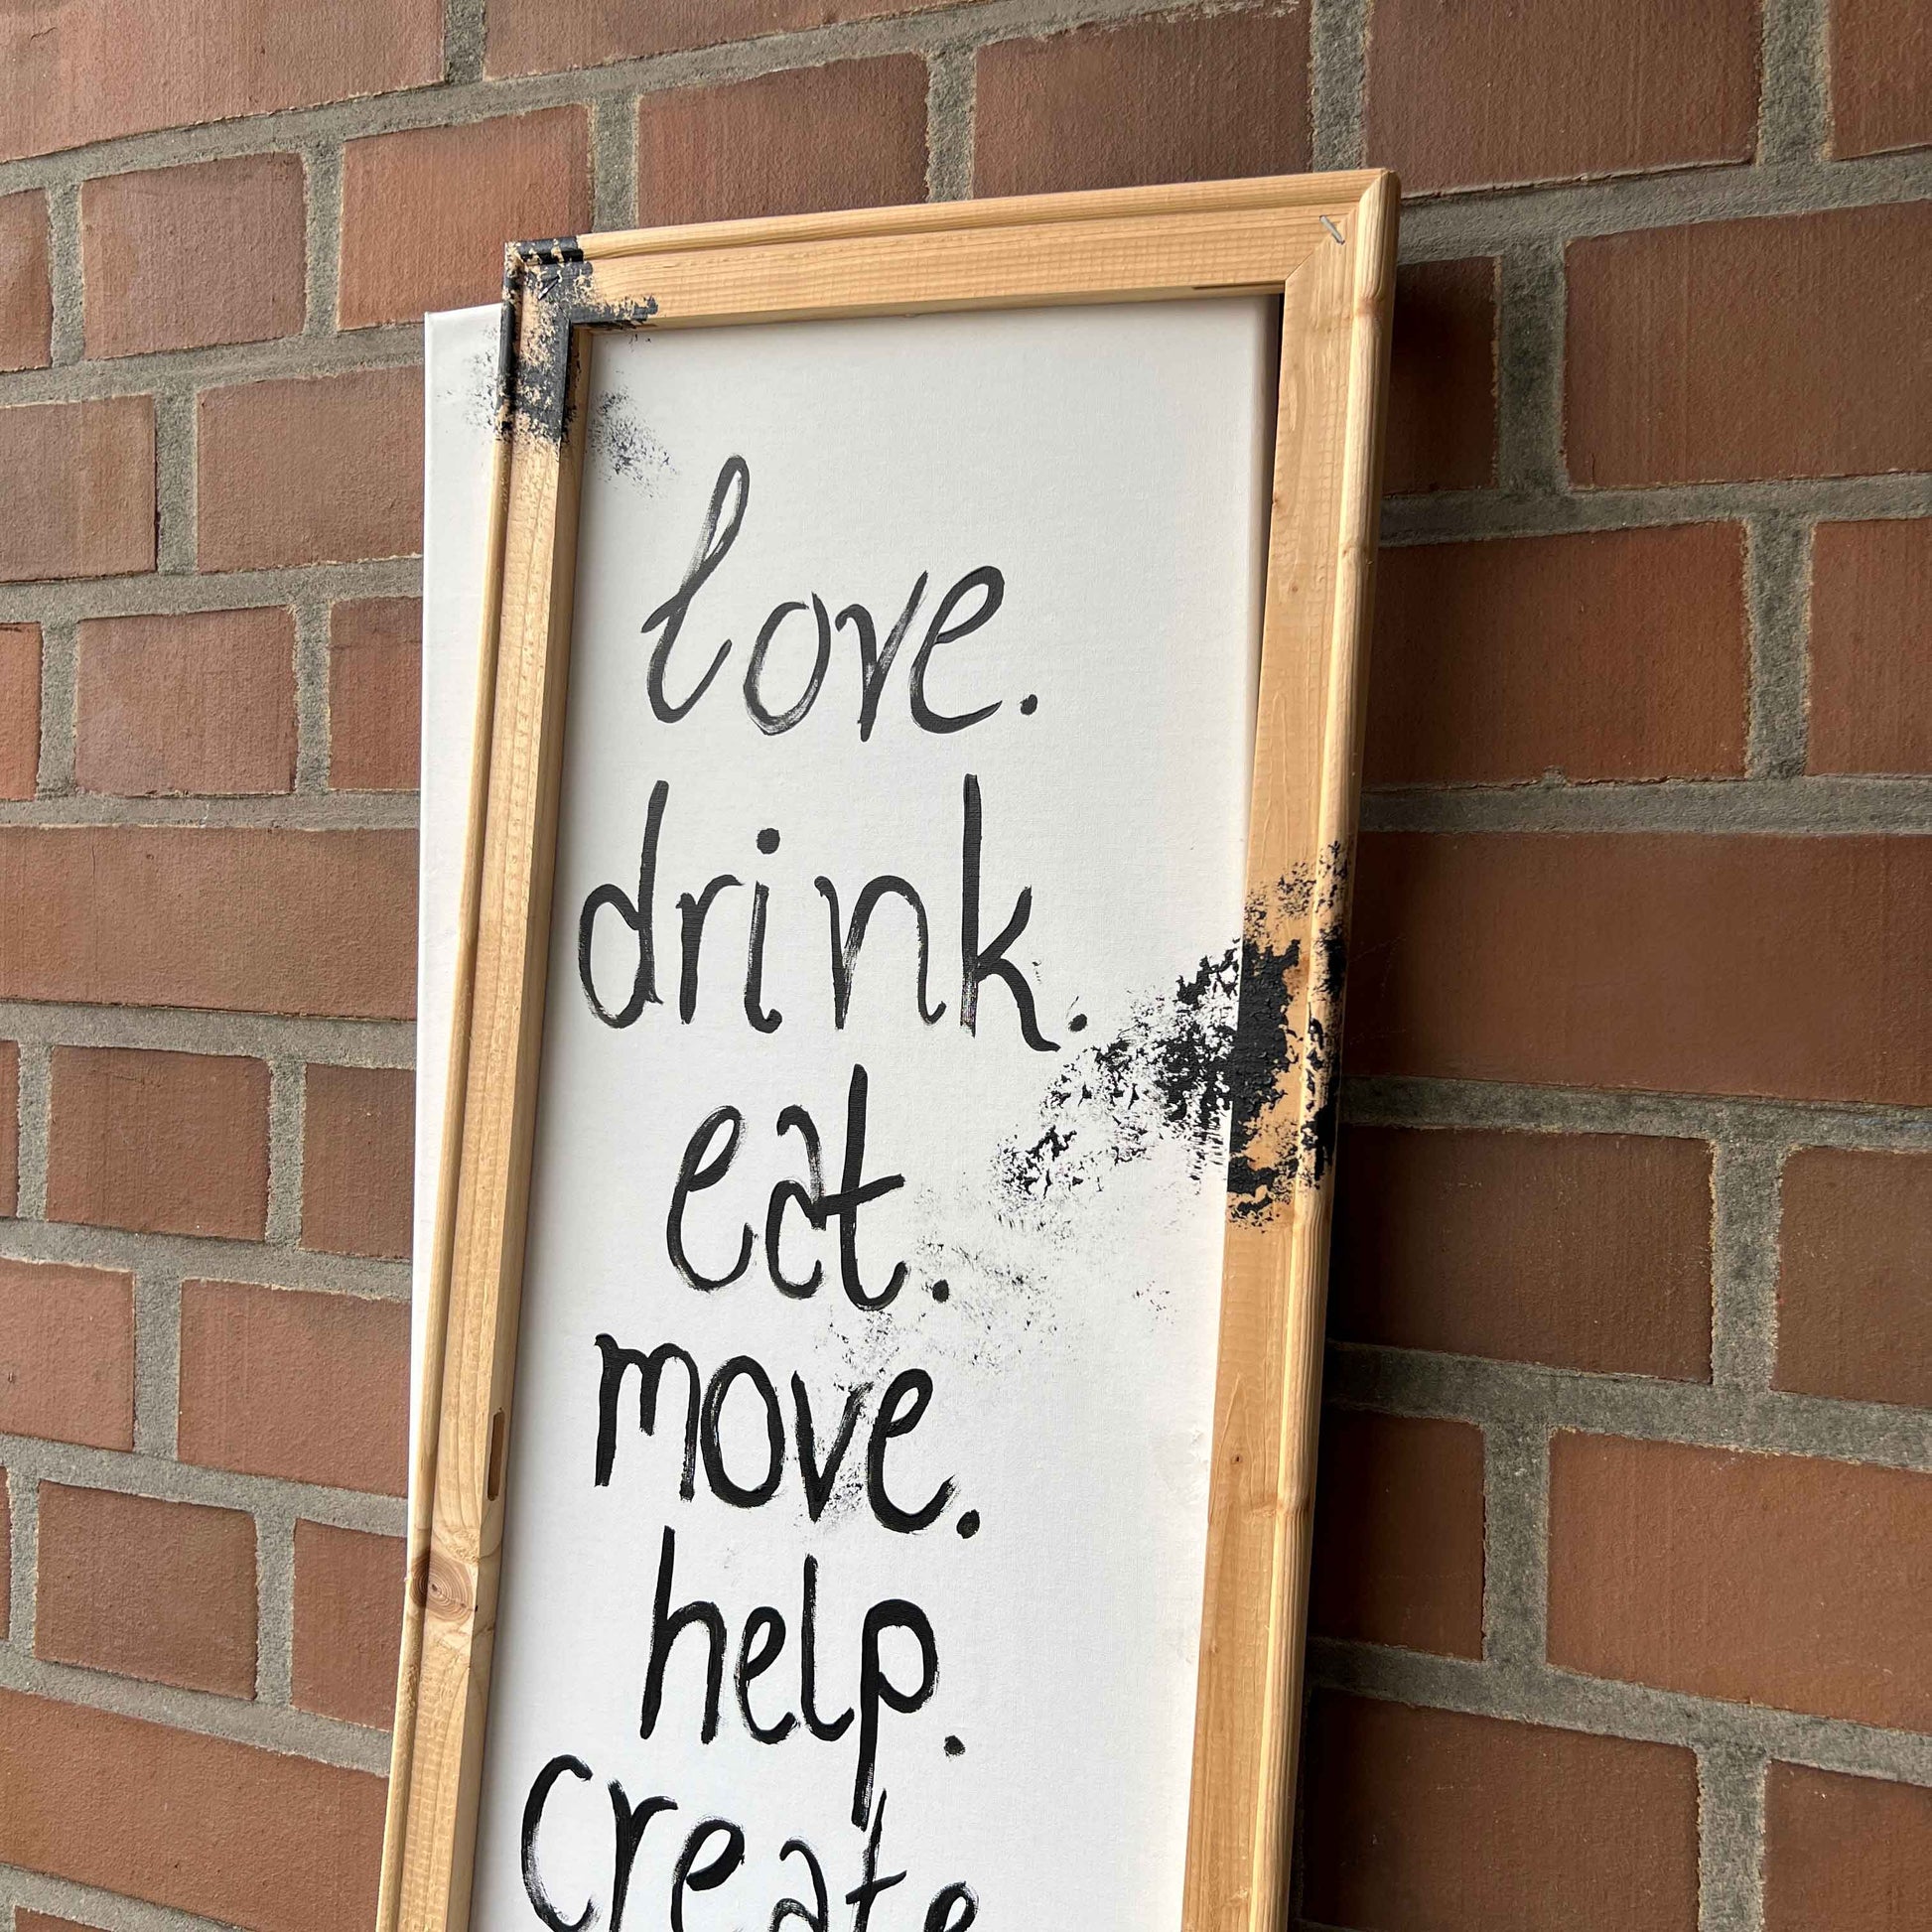 love.
drink.
eat.
move.
help.
create